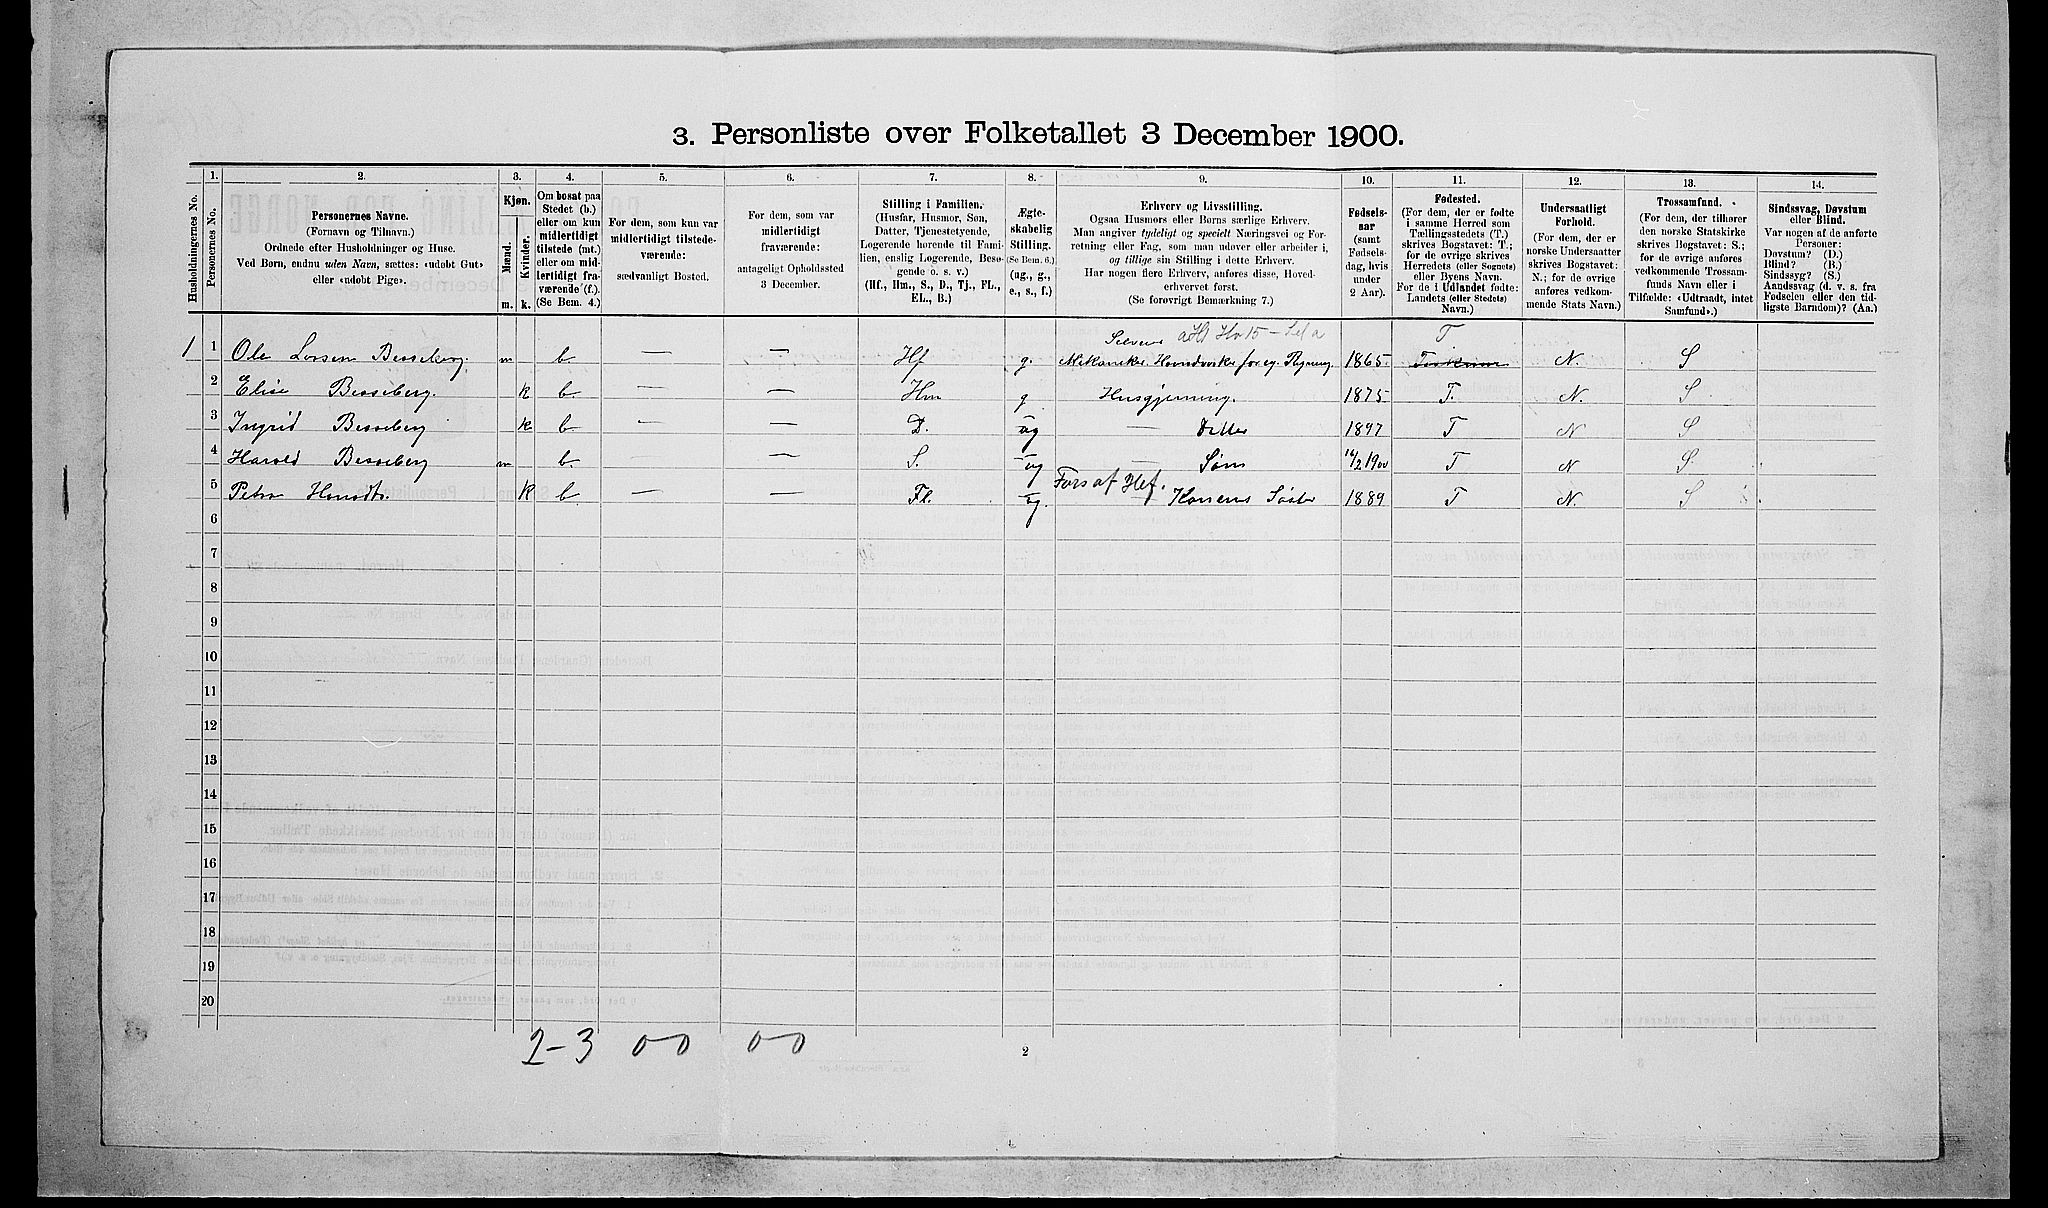 3. Personliste over Folketallet 3 December 1900.
Husholdningernes No.
1.
Personernes No.
2.
Personernes Navne.
(Fornavn og Tilnavn.)
Ordnede efter Husholdninger og Huse.
Ved Børn, endnu uden Navn, sættes: «udøbt Gut»
eller «udøbt Pige».
3.
Kjøn.
Mænd.
Kvinder.
m.
k.
4.
Om bosat paa
Stedet (b.)
eller om kun
midlertidigt
tilstede (mt.)
eller om mid-
lertidigt fra-
værende (f.).
(Se Bem. 4.)
5.
For dem, som kun var
midlertidigt tilstede-
værende:
sædvanligt Bosted.
6.
For dem, som var
midlertidigt
fraværende:
antageligt Opholdssted
3 December.
7.
Stilling i Familien.
(Husfar, Husmor, Søn,
Datter, Tjenestetyende,
Logerende hørende til Fami-
lien, enslig Logerende, Besø-
gende o. s. v.)
(Hf., Hm., S., D., Tj., FL.,
EL., B.)
8.
Ægte-
skabelig
Stilling.
(Se Bem. 6.)
(ug., g.,
e., s., f.)
9.
Erhverv og Livsstilling.
Ogsaa Husmors eller Børns særlige Erhverv.
Man angiver tydeligt og specielt Næringsvei og For-
retning eller Fag, som man udøver eller arbeider i,
og tillige sin Stilling i dette Erhverv.
Har nogen flere Erhverv, anføres disse, Hoved-
erhvervet først.
(Se forøvrigt Bemærkning 7.)
10.
Fødsels-
aar
(samt
Fødsels-
dag, hvis
under
2 Aar).
11.
Fødested.
(For dem, der er fødte
i samme Herred som
Tællingsstedets (T.)
skrives Bogstavet: T.;
for de øvrige skrives
Herredets (eller Sognets)
eller Byens Navn.
For de i Udlandet fødte:
Landets (eller Stedets)
Navn.)
12.
Undersaatligt
Forhold.
(For dem, der er
norske Undersaatter
skrives Bogstavet:
N.; for de øvrige
anføres vedkom-
mende Stats Navn.)
13.
Trossamfund.
(For dem, der tilhører
den norske Statskirke
skrives Bogstavet: S.;
for de øvrige anføres
vedkommende Trossam-
funds Navn eller i
Tilfælde: «Udtraadt, intet
Samfund».)
14.
Sindssvag, Døvstum
eller Blind.
Var nogen af de anførte
Personer:
Døvstum? (D.)
Blind? (B.)
Sindssyg? (S.)
Aandssvag (d. v. s. fra
Fødselen eller den tid-
ligste Barndom)? (Aa.)
T
1 1 Ole Larsen Besseberg. m b — — Hf g. Mekaniker Haandverker for eg. Regning. 1865. N. S
2 Elise Besseberg. k b — — Hm g Husgjerning. 1875 T. N. S
3 Ingrid Besseberg k b — — D. ug — Datter 1897 T N S
4 Harald Besseberg m b. — S. ug — Søn T N S
Fors af Hf.
5 Petra k b — — Fl. ug. Konens Søster 1889 T N. S
6
7
8
9
10
11
12
13
14
15
16
17
18
19
20
2-3 00 00
2